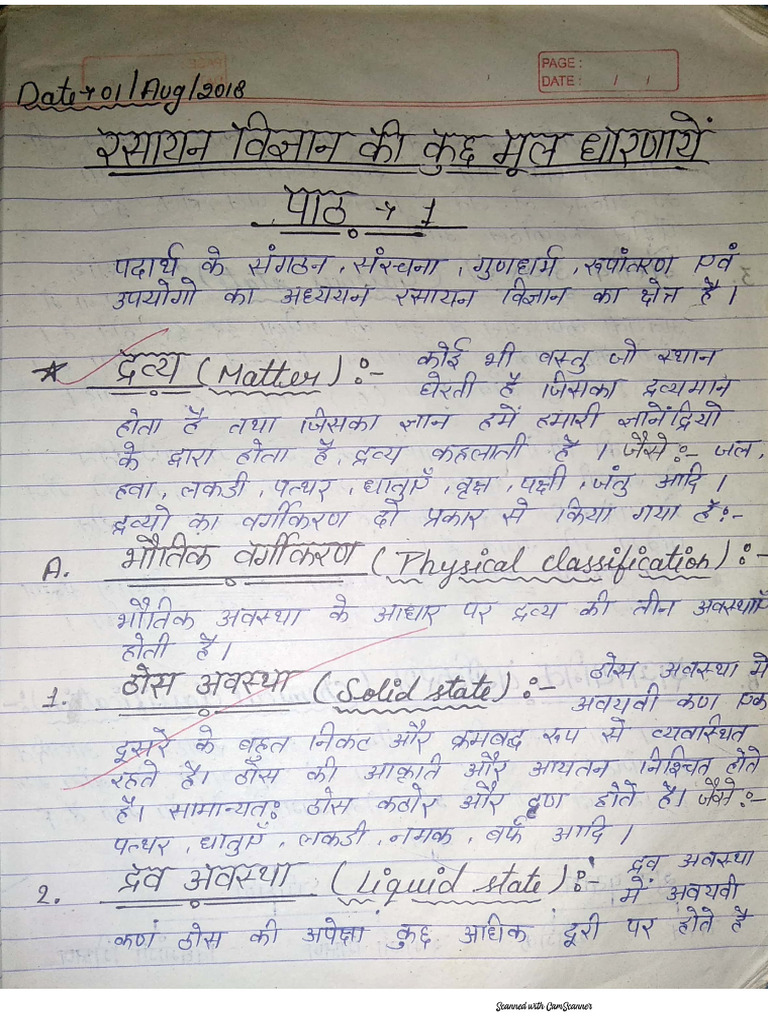 PAGE :
DATE : / /
Date→01/Aug/2018
रसायन विज्ञान की कुछ मूल धारणायें
पाठ → 1
पदार्थ के संगठन, संरचना, गुणधर्म, रूपांतरण एवं
उपयोगो का अध्ययन रसायन विज्ञान का क्षेत्र है।
★ द्रव्य (Matter) :- कोई भी वस्तु जो स्थान
घेरती है जिसका द्रव्यमान
होता है तथा जिसका ज्ञान हमें हमारी ज्ञानेंद्रियो
के द्वारा होता है, द्रव्य कहलाती है। जैसे:- जल,
हवा, लकडी, पत्थर, धातुएँ, वृक्ष, पक्षी, जंतु आदि।
द्रव्यो का वर्गीकरण दो प्रकार से किया गया है:-
A. भौतिक वर्गीकरण (Physical classification) :-
भौतिक अवस्था के आधार पर द्रव्य की तीन अवस्थाएँ
होती है।
1. ठोस अवस्था (Solid state) :- ठोस अवस्था मे
अवयवी कण एक
दूसरे के बहुत निकट और क्रमबद्ध रूप से व्यवस्थित
रहते है। ठोस की आकृति और आयतन निश्चित होते
है। सामान्यत: ठोस कठोर और होते है। जैसे:-
पत्थर, धातुएँ, लकडी, नमक, बर्फ आदि।
2. द्रव अवस्था (Liquid state) :- द्रव अवस्था
में अवयवी
कण ठोस की अपेक्षा कुछ अधिक दूरी पर होते है
Scanned with CamScanner